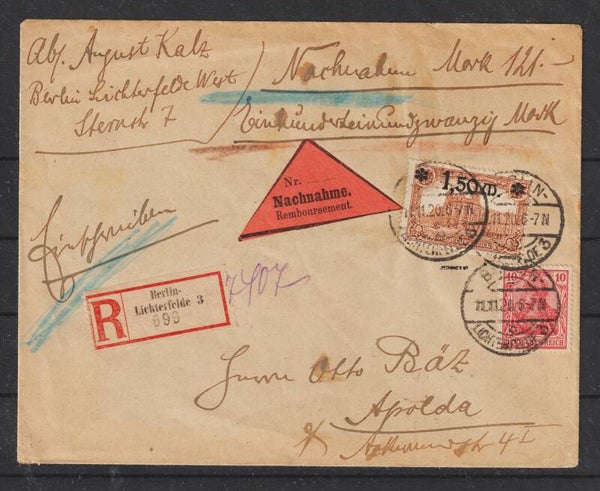 Abs. August Kalz
Berlin Lichterfelde West
Sternstr 7
Nachnahm Mark 121.-
Einhundert einundzwanzig Mark
Nr.
Nachnahme.
Remboursement.
✱ 1,50 M. ✱
11.20.6-7N
11.20.6-7N
Einschreiben
R
Berlin-
Lichterfelde 3
699
7407
10 10
11.11.20.6-7N
REICH
Herrn Otto Bäz
Apolda
4 I